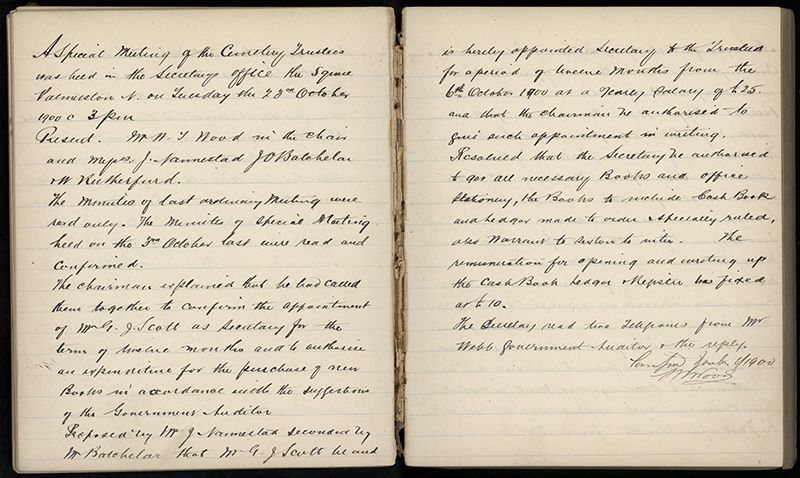 A Special Meeting of the Cemetery Trustees
was held in the Secretarys Office the Square
Palmerston N. on Tuesday the 23rd October
1900 @ 3 p.m
Present. Mr W. T Wood in the chair
and Messrs. J. Nannestad J O Batchelar
& W Rutherfurd.
The Minutes of last ordinary Meeting were
read only. The Minutes of Special Meeting
held on the 3rd October last were read and
Confirmed.
The chairman explained that he had called
them together to confirm the appointment
of Mr G. J. Scott as Secretary for the
term of twelve months and to authorise
an expenditure for the purchase of new
Books in accordance with the suggestions
of the Government Auditor
Proposed by Mr J Nannestad seconded by
Mr Batchelar that Mr G. J Scott be and
is hereby appointed Secretary to the Trustees
for a period of twelve Months from the
6th October 1900 at a Yearly Salary of £25.
and that the chairman be authorised to
give such appointment in writing.
Resolved that the Secretary be authorised
to get all necessary Books and office
Stationery, the Books to include Cash Book
and Ledger made to order & specially ruled,
also Warrant to Sexton to inter. The
remuneration for opening and writing up
the Cash Book Ledger & Register was fixed
at £10.
The Secretary read two Telegrams from Mr
Webb Government Auditor & the reply.
1900
Wood